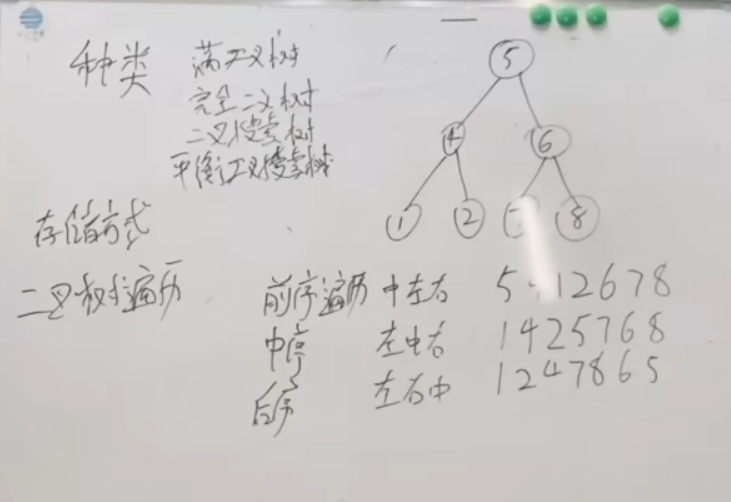 种类 满二叉树
完全二叉树
二叉搜索树
平衡二叉搜索树
5
4 6
1 2 8
存储方式
二叉树遍历 前序遍历 中左右 5 12678
中序 左中右 1425768
后序 左右中 1247865